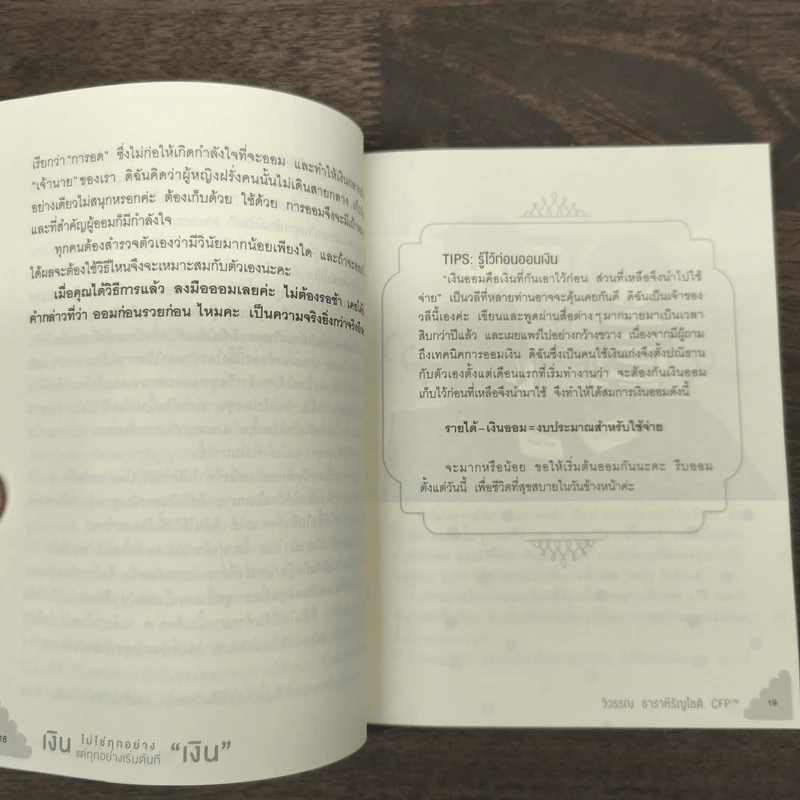 เรียกว่า “การอด” ซึ่งไม่ก่อให้เกิดกำลังใจที่จะออม และทำให้เงิน
“เจ้านาย” ของเรา ดิฉันคิดว่าผู้หญิงฝรั่งคนนั้นไม่เดินสายกลาง
อย่างเดียวไม่สนุกหรอกค่ะ ต้องเก็บด้วย ใช้ด้วย การออมจึงจะมี
และที่สำคัญผู้ออมก็มีกำลังใจ
ทุกคนต้องสำรวจตัวเองว่ามีวินัยมากน้อยเพียงใด และถ้าจะ
ได้ผลจะต้องใช้วิธีไหนจึงจะเหมาะสมกับตัวเองนะคะ
เมื่อคุณได้วิธีการแล้ว ลงมือออมเลยค่ะ ไม่ต้องรอช้า เคย
คำกล่าวที่ว่า ออมก่อนรวยก่อน ไหมคะ เป็นความจริงยิ่งกว่าจริง
18
เงิน ไม่ใช่ทุกอย่าง
แต่ทุกอย่างเริ่มต้นที่ “เงิน”
TIPS: รู้ไว้ก่อนออมเงิน
“เงินออมคือเงินที่กันเอาไว้ก่อน ส่วนที่เหลือจึงนำไปใช้
จ่าย” เป็นวลีที่หลายท่านอาจจะคุ้นเคยกันดี ดิฉันเป็นเจ้าของ
วลีนี้เองค่ะ เขียนและพูดผ่านสื่อต่างๆ มากมายมาเป็นเวลา
สิบกว่าปีแล้ว และเผยแพร่ไปอย่างกว้างขวาง เนื่องจากมีผู้ถาม
ถึงเทคนิคการออมเงิน ดิฉันซึ่งเป็นคนใช้เงินเก่งจึงตั้งปณิธาน
กับตัวเองตั้งแต่เดือนแรกที่เริ่มทำงานว่า จะต้องกันเงินออม
เก็บไว้ก่อนที่เหลือจึงนำมาใช้ จึงทำให้ได้สมการเงินออมดังนี้
รายได้–เงินออม=งบประมาณสำหรับใช้จ่าย
จะมากหรือน้อย ขอให้เริ่มต้นออมกันนะคะ รีบออม
ตั้งแต่วันนี้ เพื่อชีวิตที่สุขสบายในวันข้างหน้าค่ะ
วิวรรณ ธาราหิรัญโชติ CFP™ 19